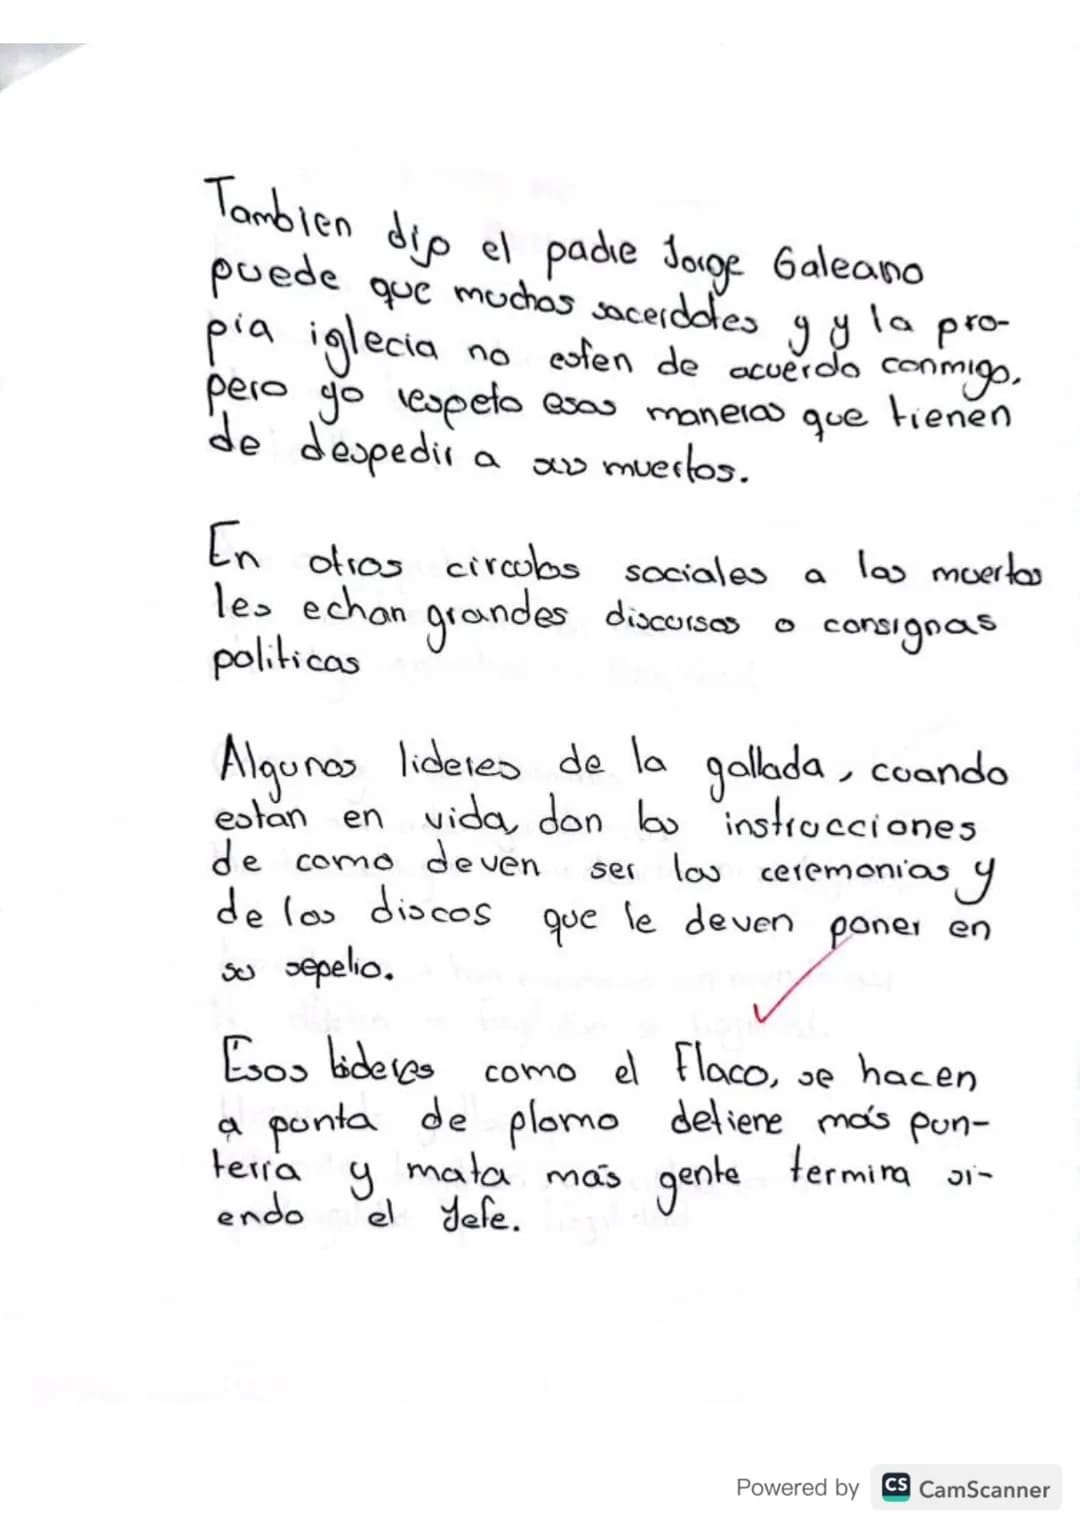 Tambien dijo el padre Jorge Galeano
puede que muchos sacerdotes y y la pro-
pia iglecia no esten de acuerdo conmigo,
pero yo respeto esas maneras que tienen
de despedir a sus muertos.
En otros circulos sociales a los muertos
les echan grandes discursos o consignas
politicas
Algunos lideres de la gallada, cuando
están en vida, dan las instrucciones
de como deven ser las ceremonias y
de los discos que le deven poner en
su sepelio.
Esos lideres como el Flaco, se hacen
a punta de plomo detiene más pun-
teria y mata más gente termina si-
endo el Jefe.
Powered by CS CamScanner